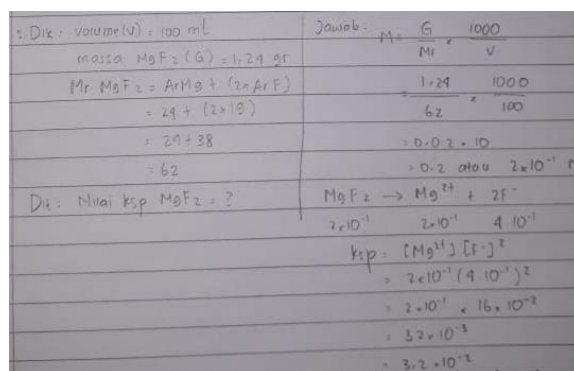 : Dik : volume (v) = 100 mL
massa MgF₂ (G) = 1,24 gr
Mr MgF₂ = Ar Mg + (2 × Ar F)
= 24 + (2×19)
= 24 + 38
= 62
Dit : Nilai ksp MgF₂ = ?
Jawab : M = G/Mr × 1000/V
= 1,24/62 × 1000/100
= 0.02 × 10
= 0.2 atau 2×10⁻¹ M
MgF₂ → Mg²⁺ + 2F⁻
2×10⁻¹ 2×10⁻¹ 4.10⁻¹
ksp = [Mg²⁺] [F⁻]²
= 2×10⁻¹ (4.10⁻¹)²
= 2×10⁻¹ × 16×10⁻²
= 32×10⁻³
= 3.2×10⁻²